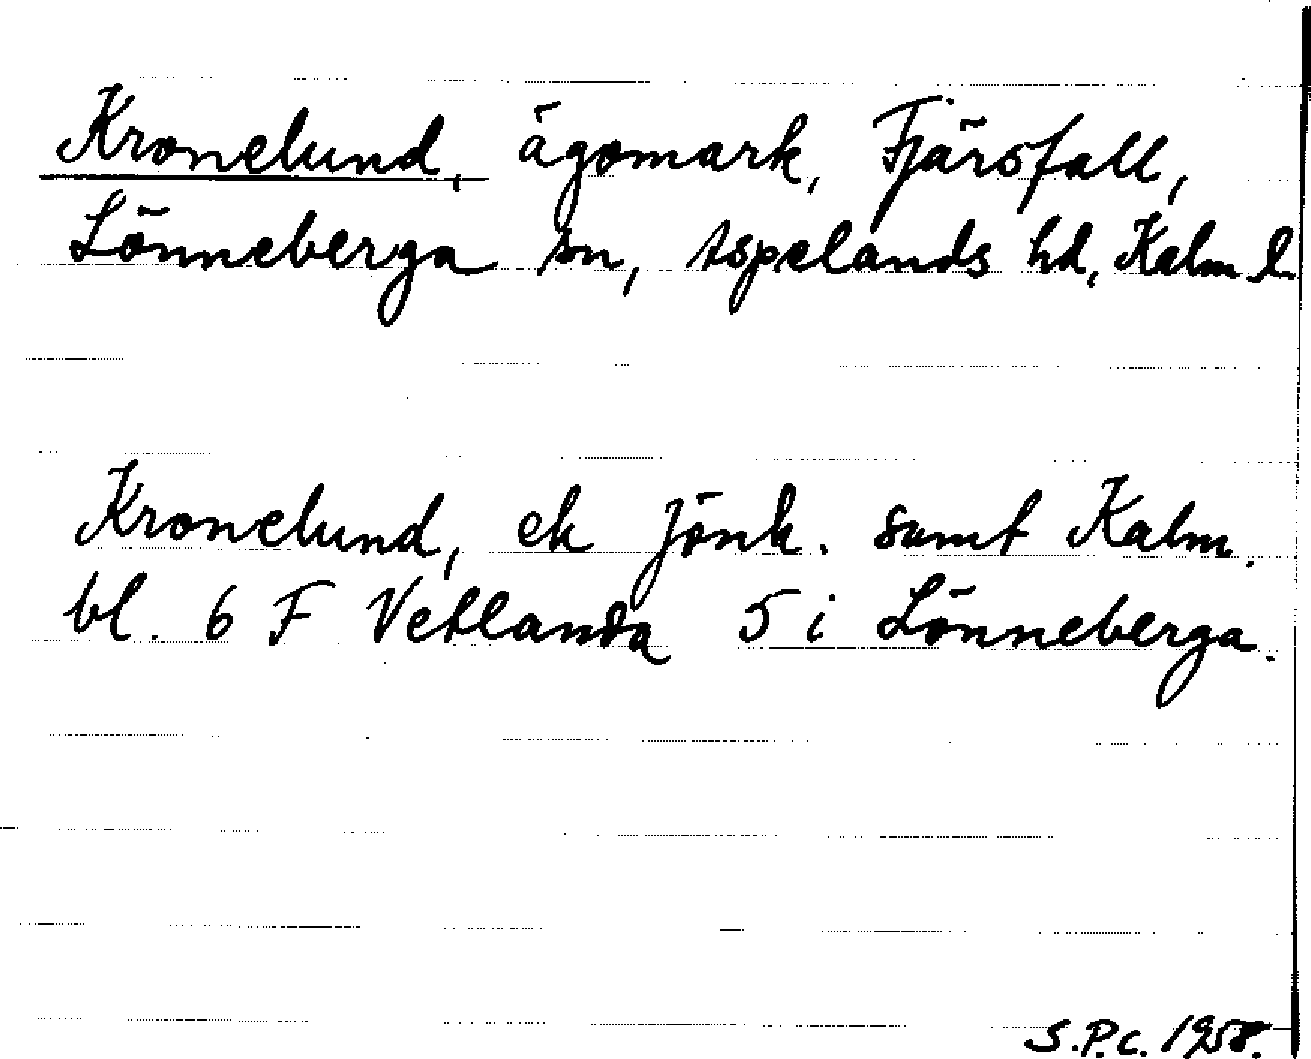 Kronelund, ägomark, Fjärsfall,
Lönneberga sn, Aspelands hd, Kalm l.
Kronelund, ek Jönk. samt Kalm.
bl. 6 F Vetlanda 5 i Lönneberga.
S.P.c. 1958.